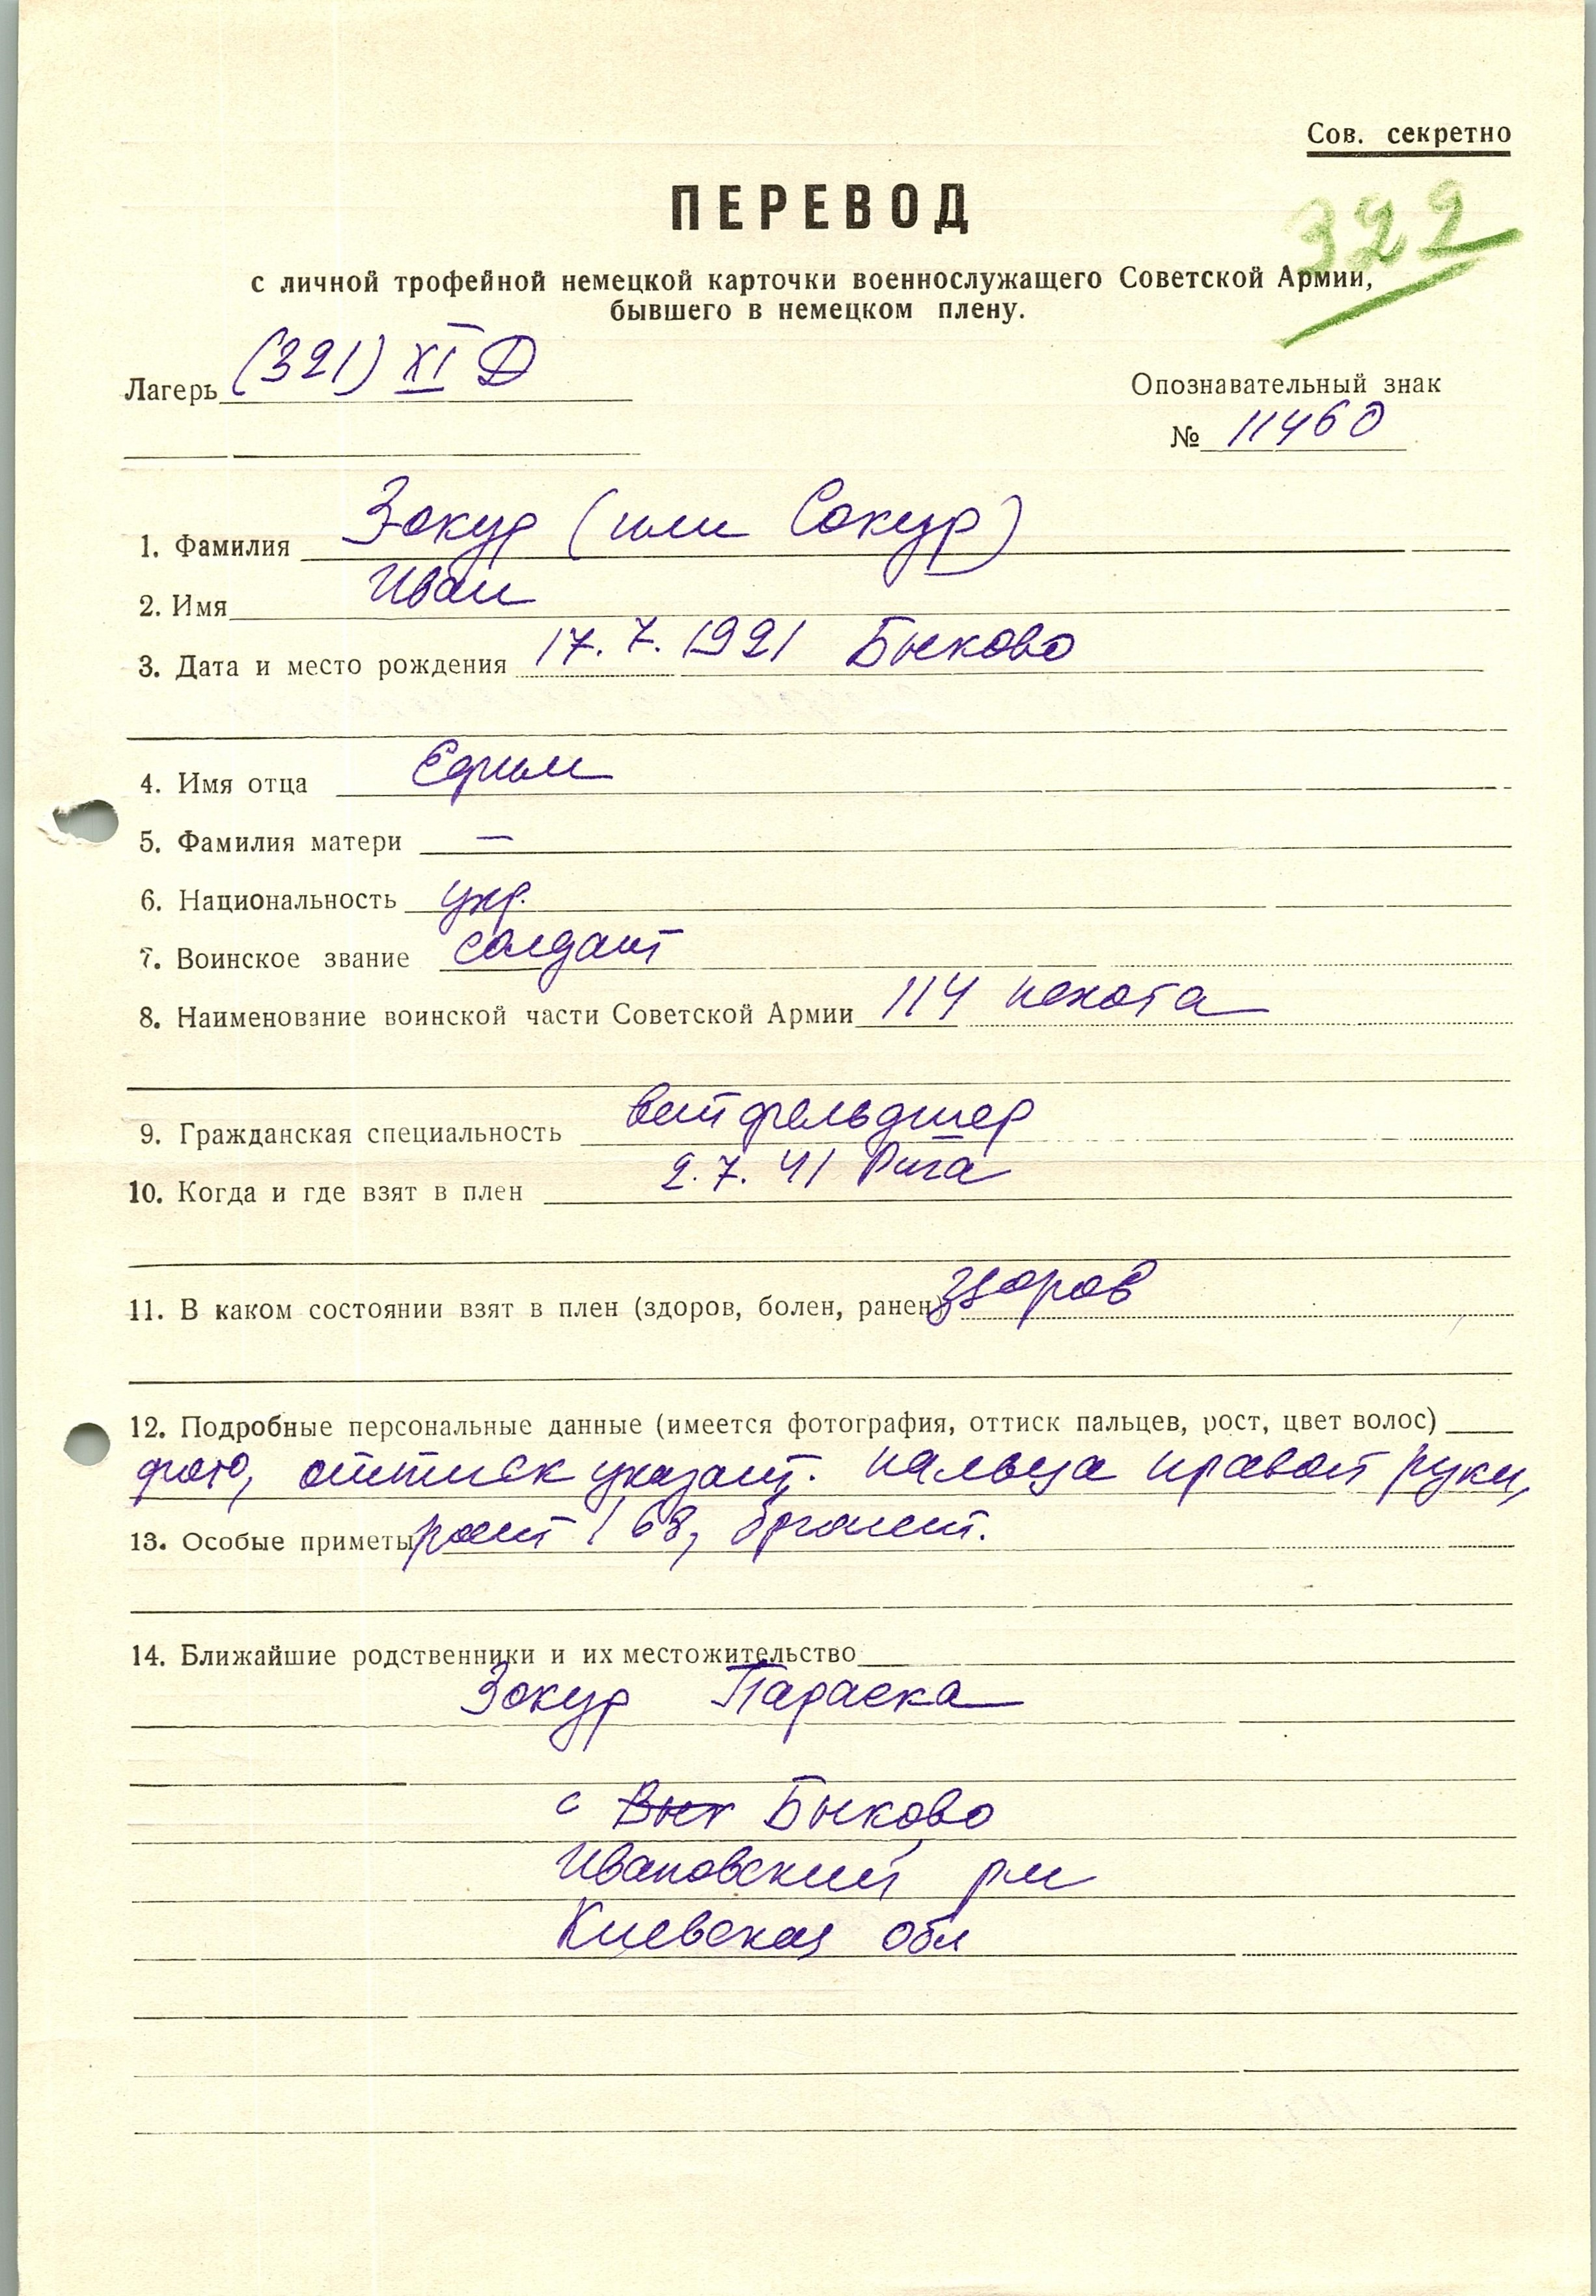 Сов. секретно
ПЕРЕВОД
322
с личной трофейной немецкой карточки военнослужащего Советской Армии,
бывшего в немецком плену.
Лагерь (321) XI D
Опознавательный знак
№ 11460
1. Фамилия Зокур (или Сокур)
2. Имя Иван
3. Дата и место рождения 17.7.1921 Быково
4. Имя отца Ефим
5. Фамилия матери —
6. Национальность укр.
7. Воинское звание солдат
8. Наименование воинской части Советской Армии 114 пехота
9. Гражданская специальность ветфельдшер
10. Когда и где взят в плен 2.7.41 Рига
11. В каком состоянии взят в плен (здоров, болен, ранен) здоров
12. Подробные персональные данные (имеется фотография, оттиск пальцев, рост, цвет волос)
фото, оттиск указат. пальца правой руки,
13. Особые приметы рост 168, брюнет.
14. Ближайшие родственники и их местожительство
Зокур Параска
с Вык Быково
Ивановский рн
Киевская обл